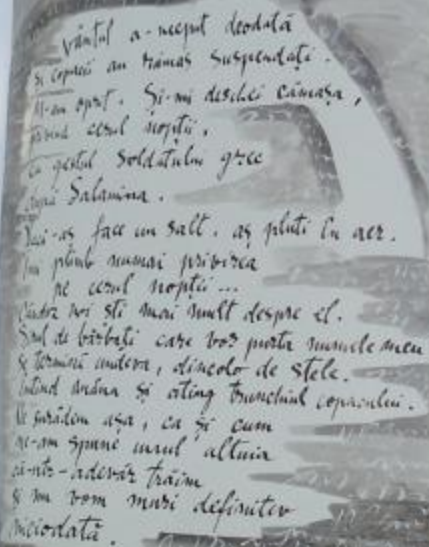 Vântul a-nceput deodată
și copacii au rămas suspendați.
M-am oprit. Și-mi deschei cămașa,
privind cerul nopții,
cu gestul soldatului grec
după Salamina.
Dacă-aș face un salt, aș pluti în aer.
Îmi plimb numai privirea
pe cerul nopții...
Cândva voi ști mai mult despre el.
Șirul de bărbați care vor purta numele meu
se termină undeva, dincolo de stele.
Întind mâna și ating trunchiul copacului.
Ne surâdem așa, ca și cum
ne-am spune unul altuia
că-ntr-adevăr trăim
și nu vom muri definitiv
niciodată.